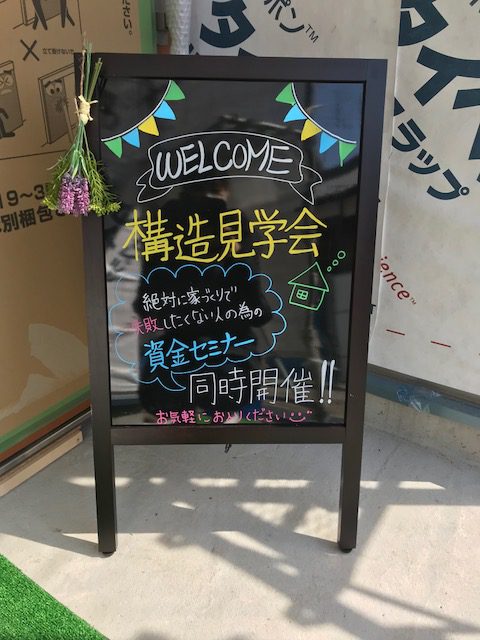 WELCOME
構造見学会
絶対に家づくりで
失敗したくない人の為の
資金セミナー
同時開催!!
お気軽におとりください
ポン™
タイベ
ラップ
ience™
立て掛けないで
19〜3
別梱包